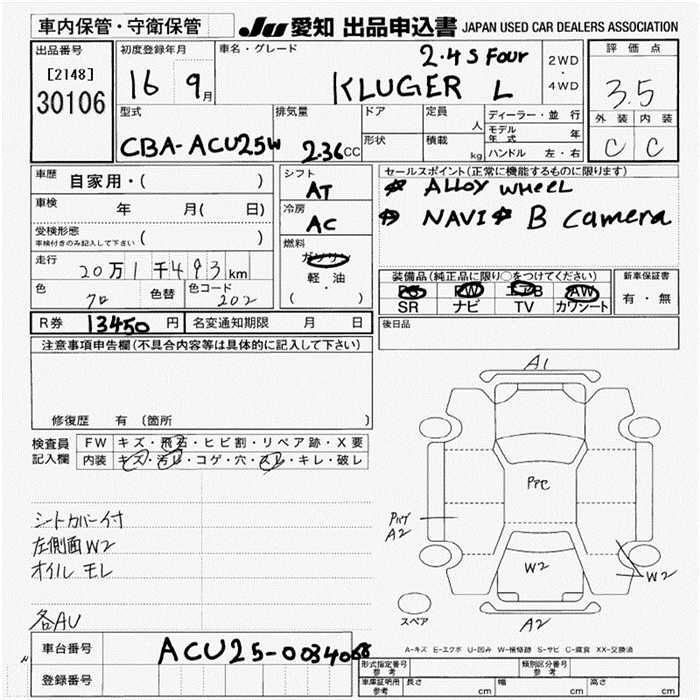 車内保管・守衛保管
JU 愛知 出品申込書 JAPAN USED CAR DEALERS ASSOCIATION
出品番号
[2148]
30106
初度登録年月
16 9月
車名・グレード
2.4 S FOUR
KLUGER L
2WD
・
4WD
評価点
3.5
外装 内装
C C
型式
CBA-ACU25W
排気量
2.36CC
ドア
形状
定員
人
積載
kg
ディーラー・並行
モデル年式 年
ハンドル 左・右
車歴 自家用・( )
車検 年 月( 日)
受検形態
車検付きのみ記入して下さい ( )
走行 20万1千493km
色 クロ 色替 色コード 202
シフト
AT
冷房
AC
燃料
ガソリン
軽・油
( )
セールスポイント(正常に機能するものに限ります)
ALLOY WHEEL
NAVI B Camera
装備品(純正品に限り○をつけてください)
PS PW エアB AW
SR ナビ TV カワシート
新車保証書
有・無
R券 13450円 名変通知期限 月 日
後日品
注意事項申告欄(不具合内容等は具体的に記入して下さい)
修復歴 有(箇所 )
検査員
記入欄
FW キズ・飛石・ヒビ割・リペア跡・X要
内装 キズ・汚レ・コゲ・穴・スレ・キレ・破レ
シートカバー付
左側面W2
オイルモレ
各AU
A1
PPC
A2
W2
W2
スペア
A2
A-キズ E-エクボ U-凹み W-補修跡 S-サビ C-腐食 XX-交換済
車台番号 ACU25-0034066
登録番号
型式指定番号
参考
類別区分番号
参考
車庫証明用
参考
長さ cm 幅 cm 高さ cm